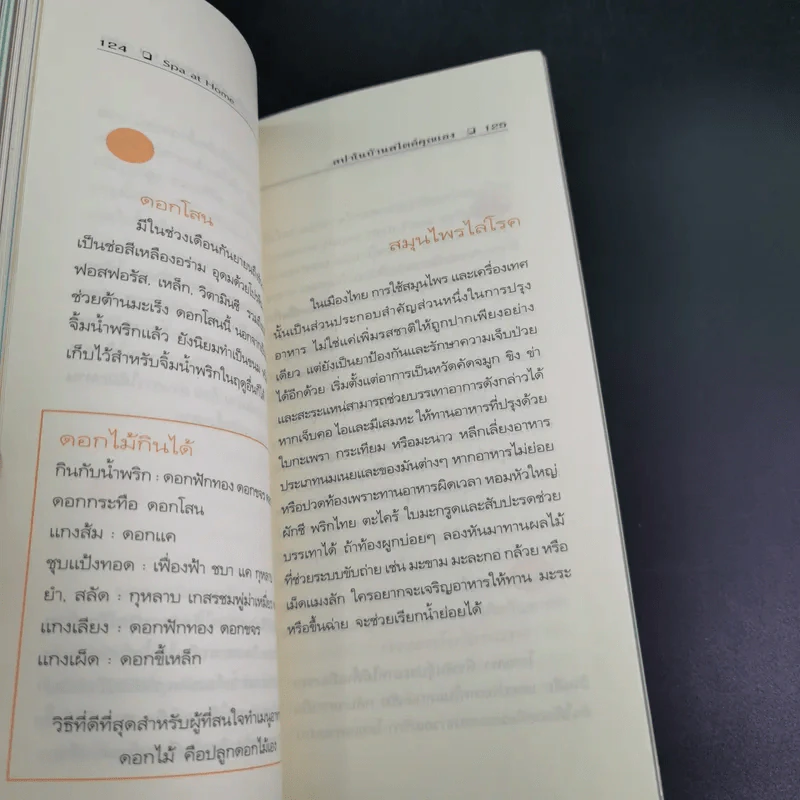 124 ❑ Spa at Home
ดอกโสน
มีในช่วงเดือนกันยายนถึง
เป็นช่อสีเหลืองอร่าม อุดมด้วย
ฟอสฟอรัส, เหล็ก, วิตามินซี
ช่วยต้านมะเร็ง ดอกโสนนี้
จิ้มน้ำพริกแล้ว ยังนิยมทำเป็นขนม
เก็บไว้สำหรับจิ้มน้ำพริกในฤดูอื่น
ดอกไม้กินได้
กินกับน้ำพริก : ดอกฟักทอง ดอกขจร
ดอกกระทือ ดอกโสน
แกงส้ม : ดอกแค
ชุบแป้งทอด : เฟื่องฟ้า ชบา แค กุหลาบ
ยำ, สลัด : กุหลาบ เกสรชมพู่ม่าเหมี่ยว
แกงเลียง : ดอกฟักทอง ดอกขจร
แกงเผ็ด : ดอกขี้เหล็ก
วิธีที่ดีที่สุดสำหรับผู้ที่สนใจทำเมนู
ดอกไม้ คือปลูกดอกไม้เอง
สปาในบ้านสไตล์คุณเอง ❑ 125
สมุนไพรไล่โรค
ในเมืองไทย การใช้สมุนไพร และเครื่องเทศ
นั้นเป็นส่วนประกอบสำคัญส่วนหนึ่งในการปรุง
อาหาร ไม่ใช่แค่เพิ่มรสชาติให้ถูกปากเพียงอย่าง
เดียว แต่ยังเป็นยาป้องกันและรักษาความเจ็บป่วย
ได้อีกด้วย เริ่มตั้งแต่อาการเป็นหวัดคัดจมูก ขิง ข่า
และสะระแหน่สามารถช่วยบรรเทาอาการดังกล่าวได้
หากเจ็บคอ ไอและมีเสมหะ ให้ทานอาหารที่ปรุงด้วย
ใบกะเพรา กระเทียม หรือมะนาว หลีกเลี่ยงอาหาร
ประเภทนมเนยและของมันต่างๆ หากอาหารไม่ย่อย
หรือปวดท้องเพราะทานอาหารผิดเวลา หอมหัวใหญ่
ผักชี พริกไทย ตะไคร้ ใบมะกรูดและสับปะรดช่วย
บรรเทาได้ ถ้าท้องผูกบ่อยๆ ลองหันมาทานผลไม้
ที่ช่วยระบบขับถ่าย เช่น มะขาม มะละกอ กล้วย หรือ
เม็ดแมงลัก ใครอยากจะเจริญอาหารให้ทาน มะระ
หรือขึ้นฉ่าย จะช่วยเรียกน้ำย่อยได้